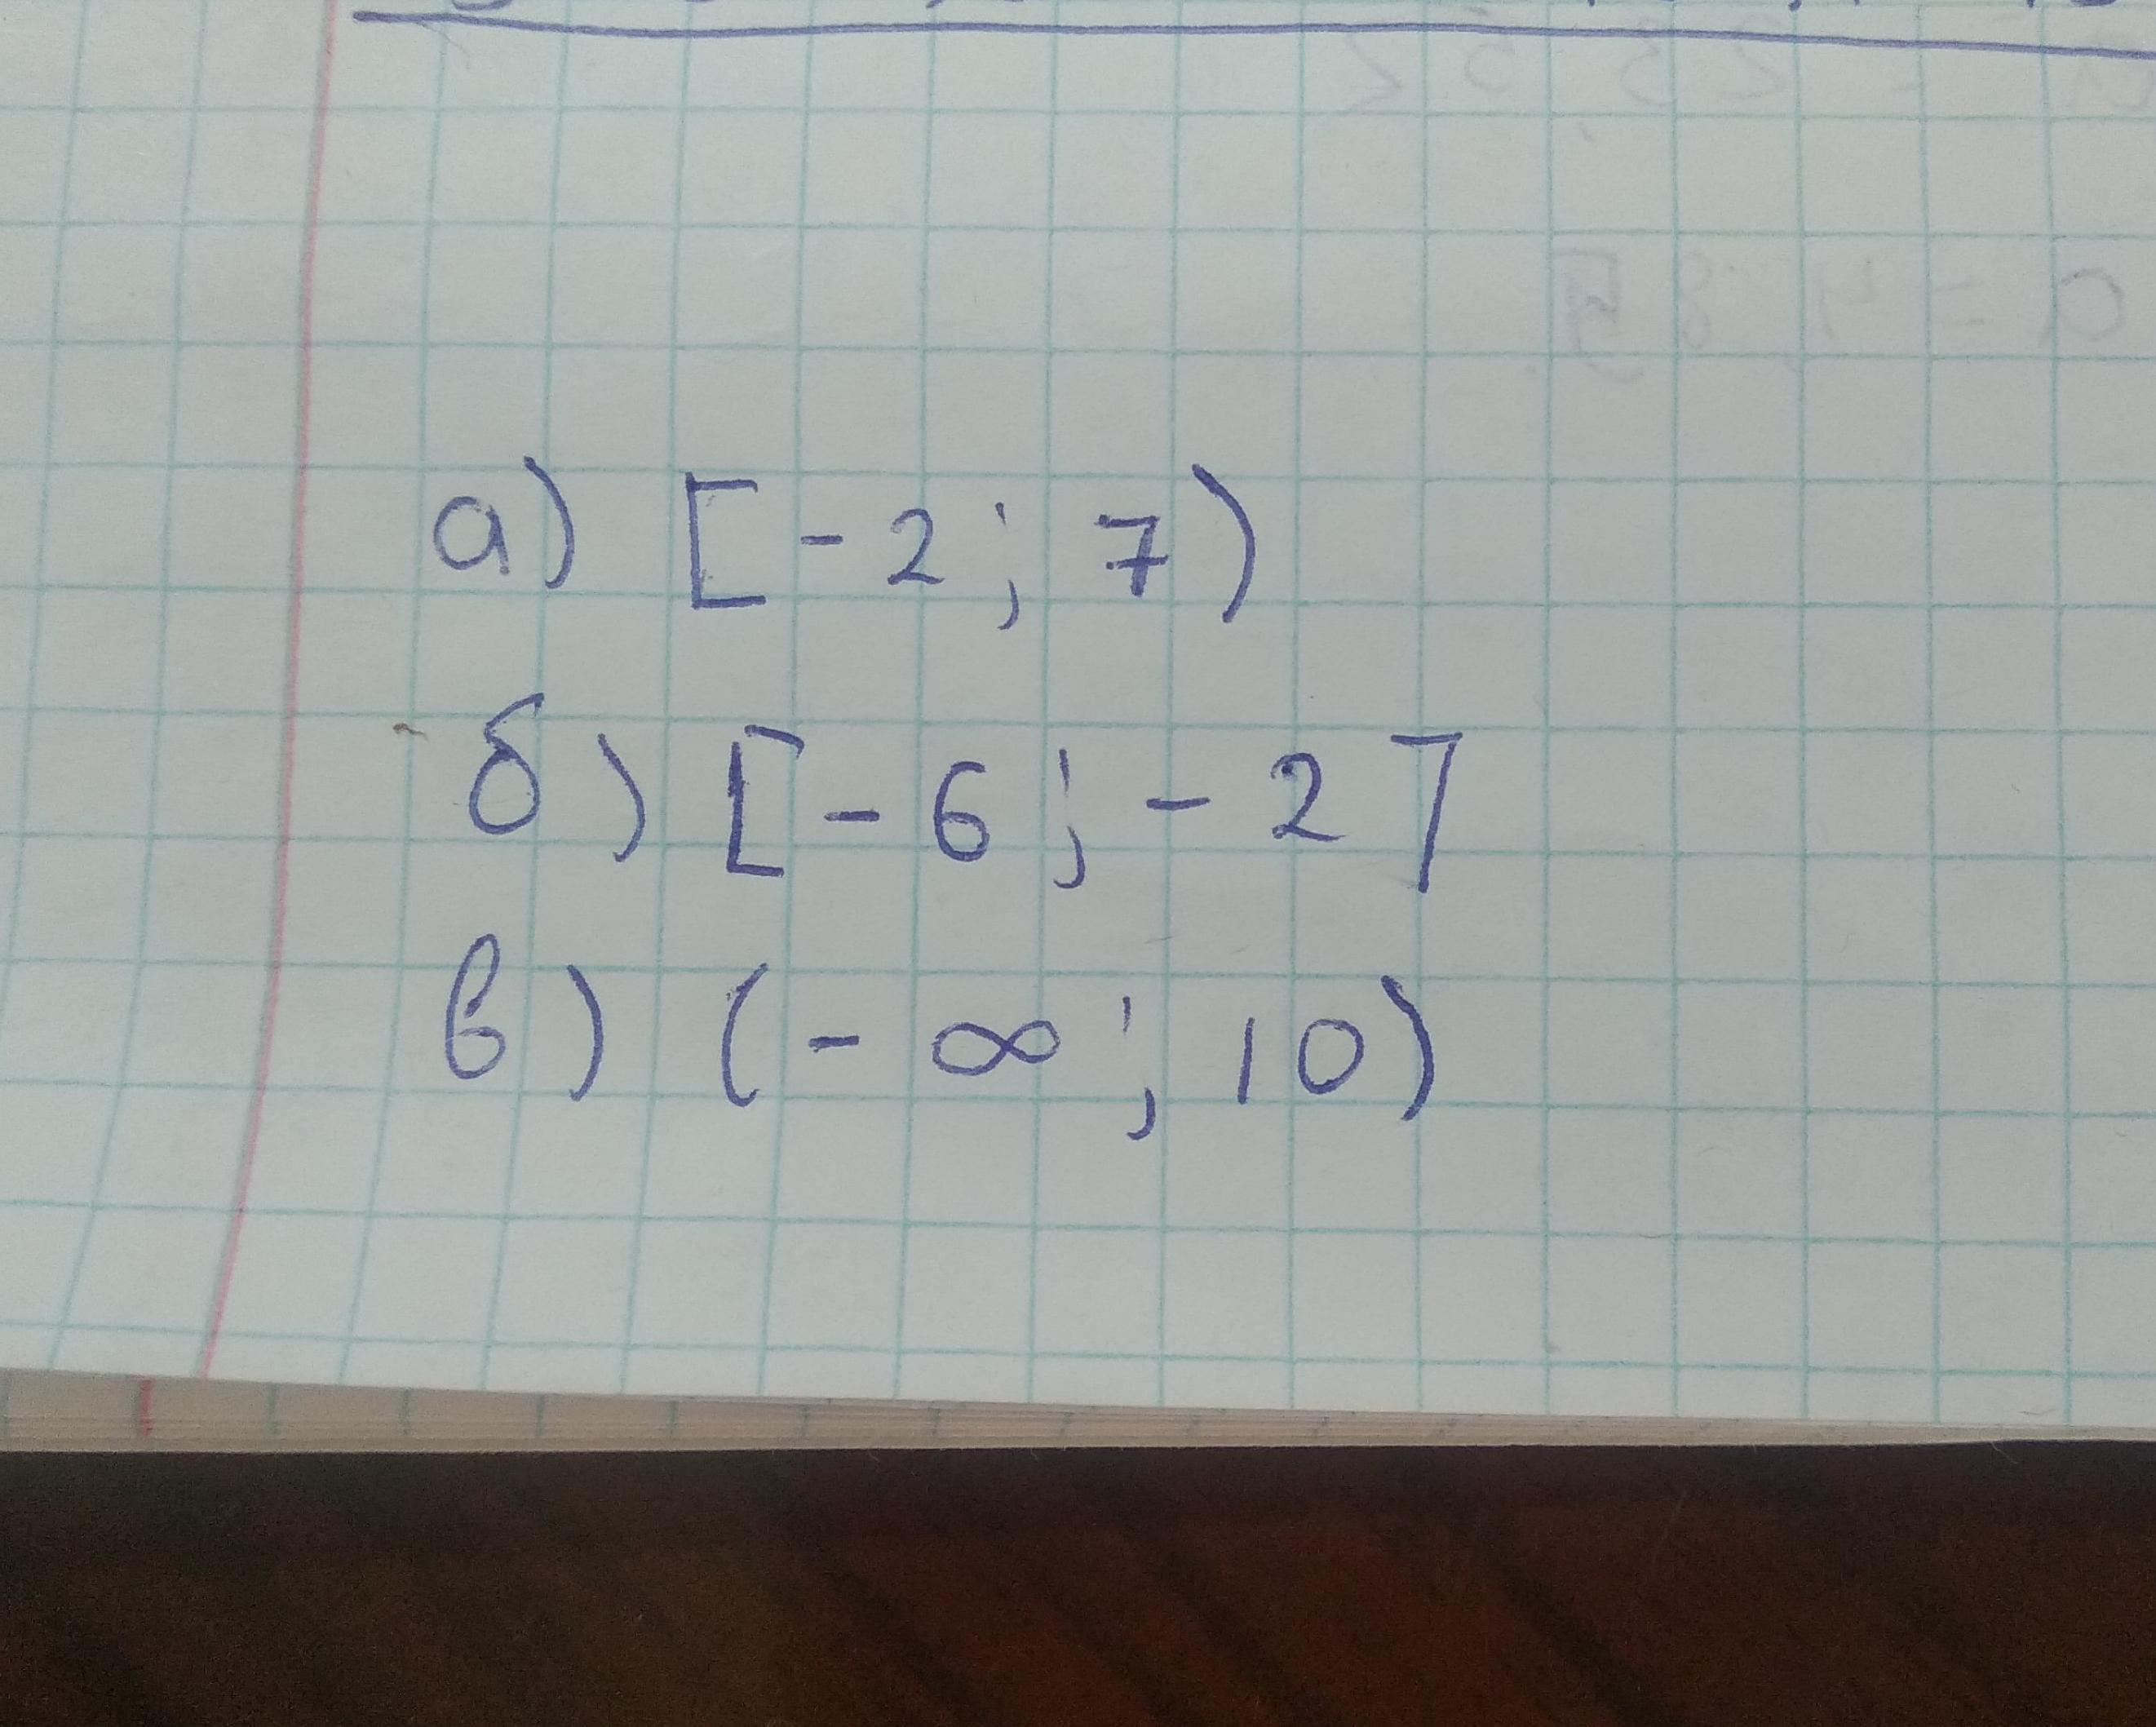 а) [-2; 7)
б) [-6; -2]
в) (-∞; 10)